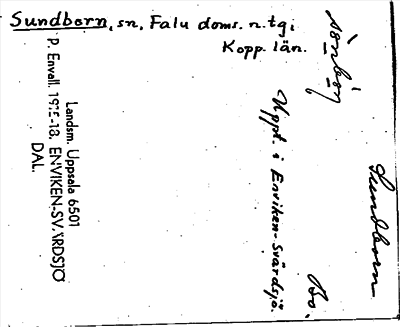 Sundborn, sn, Falu doms. n.tg,
Kopp. län.
sönbön
Sundborn
Bo.
Uppt. i Enviken-Svärdsjö.
Landsm. Uppsala 6501
P. Envall. 1915-18. ENVIKEN-SVÄRDSJÖ
DAL.